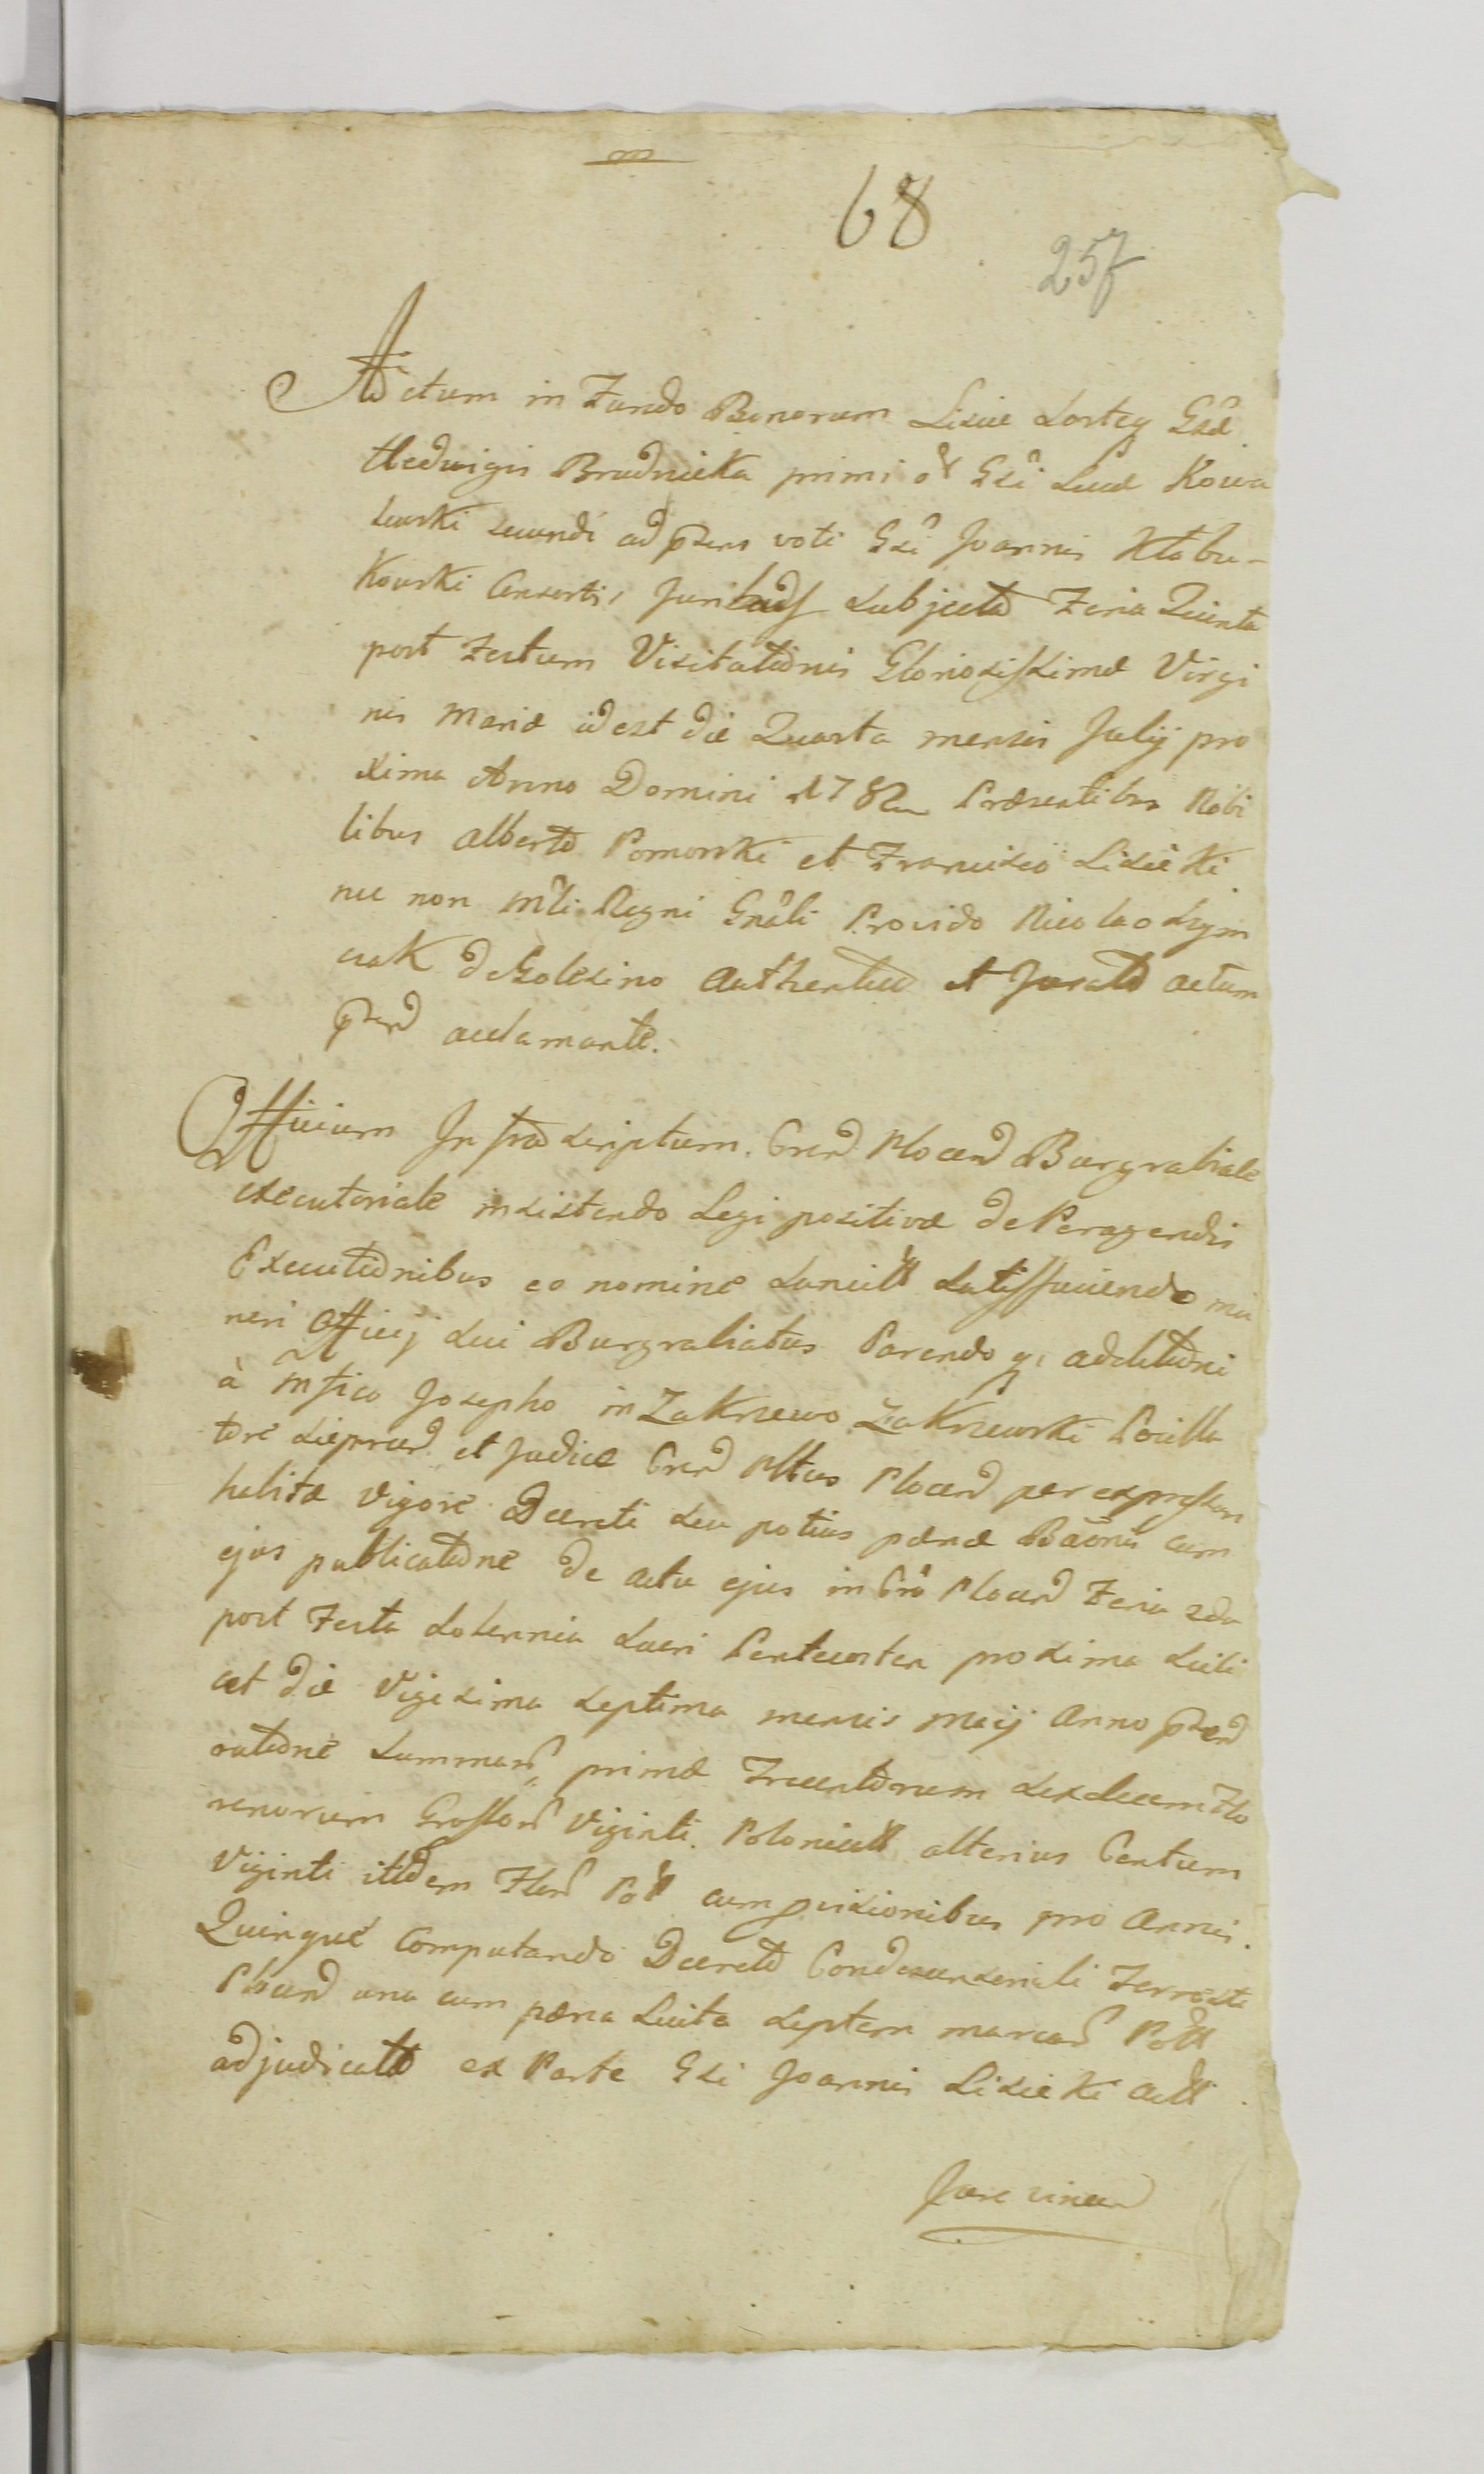 68
257
Actum in Fundo Bonorum Lisice Sortey Gsæ
Hedvigis Brudnicka primi o͞l Gsi Lucæ Kowa
lewski secundi ad p̃sens voti Gsi Joannis Kłobu-
kowski Consortis, Subjecto Feria Quinta
post Festum Visitationis Gloriosissimæ Virgi
nis Mariæ id est die Quarta mensis Julij pro
xima Anno Domini 178 Præsentibus Nobi
libus Alberto Pomorski et Francisco Lisicki
nec non Mli Regni Gnãli Provido Nicolao Szym
czak de Golesino Authentico et Jurato actum
p̃sen acclamante.
Officium Infrascriptum Cren Plocen Burgrabiale
executoriale insistendo Legi positivæ de Peragendis
Executionibus eo nomine Sancitt Satisfaciendo mu
neri Officij sui Burgrabiatus Parendo q; adcitationi
à Mfico Josepho in Zakrzewo Zakrzewski Pocilla
tore Sieprcen et Judice Cren Pltus Plocen per expressum
habitæ vigore Decreti seu potius pænæ Bãonis cum
ejus publicatione de actu ejus in Cro Plocen Feria 2da
post Festa Solennia Sacri Pentecostes proxima scili
cet die Vigesima Septima mensis Maij Anno p̃sen
ratione Summar primæ Trecentorum Sexdecem Flo
renorum Grossor Viginti Polonicall alterius Centum
Viginti itidem Flor Poll cum provisionibus pro Annis
Quinque Computando Decreto Condescensoriali Terrestri
Plocen una cum pæna Luita Septem marcar Poll
adjudicatt ex Parte Gsi Joannis Lisicki Actt
Jure vincen